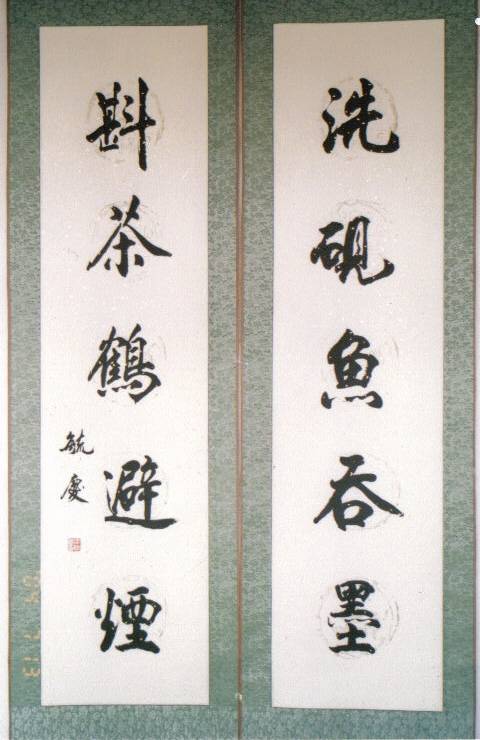 洗硯魚吞墨
斟茶鶴避煙
毓慶